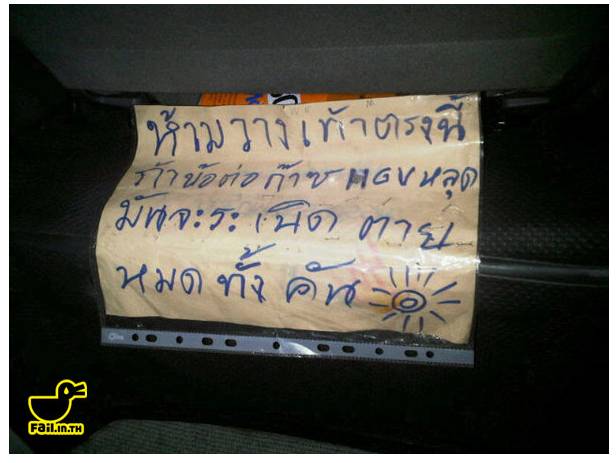 ห้ามวางเท้าตรงนี้
ถ้าข้อต่อก๊าซ NGV หลุด
มันจะระเบิด ตาย
หมดทั้งคัน
FaiL.in.TH